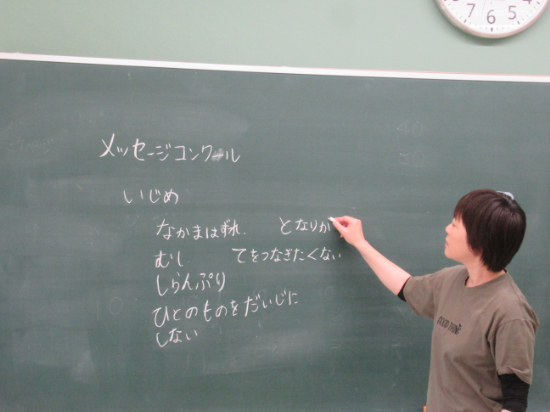 メッセージコンクール
いじめ
なかまはずれ. となりが
むし てをつなぎたくない
しらんぷり
ひとのものをだいじに
しない
7 6 5